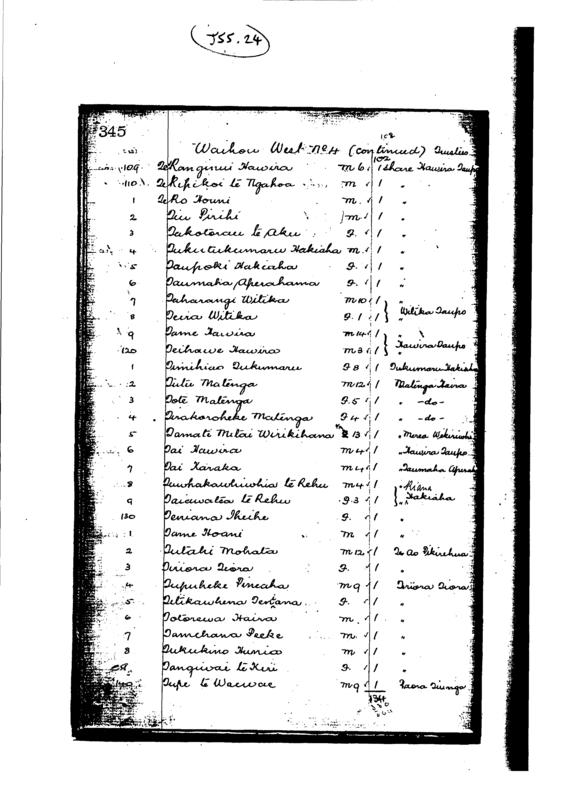 J55.24
345
102
Waihou West No 4 (continued) Trustees
102
109 Te Ranginui Hawira m 6 1 share Hawira Taupo
110 Te Ripikoi te Ngahoa m 1 "
1 Te Ro Houni m. 1 "
2 Tiu Pirihi m 1 "
3 Takotorau te Aku f. 1 "
4 Tukutukumaru Hakiaha m. 1 "
5 Taupoki Hakiaha f. 1 "
6 Taumaha Aperahama f. 1 "
7 Taharangi Witika m 10 1 "
8 Teria Witika f. 1 1 " Witika Taupo
9 Tame Hawira m 14 1 "
120 Teihawe Hawira m 3 1 Hawira Taupo
1 Timihiao Tukumaru f 8 1 Tukumaru Hakiaha
2 Tutu Matenga m 12 1 Matenga Haira
3 Tote Matenga f. 5 1 " -do-
4 Tirakoroheke Matenga f 4 1 " -do-
5 Tamati Mitai Wirikihana m 13 1 " Merea
6 Tai Hawira m 4 1 " Hawira Taupo
7 Tai Karaka m 4 1 " Taumaha
8 Tuwhakawhiwhia te Rehu m 4 1 "
9 Taiawatea te Rehu f. 3 1 " Hakiaha
130 Teniana Iheihe f. 1 "
1 Tame Hoani m 1 "
2 Tutahi Mohata m 12 1 Te Ao Pikirehua
3 Tiriora Tiora f. 1 "
4 Tupuheke Pineaha m 9 1 Tiriora Tiora
5 Titikawhena f. 1 "
6 Totorewa Haira m. 1 "
7 Tamehana Peeke m. 1 "
8 Tukukino Hunia m 1 "
Tangiwai te Kiri f. 1 "
140 Tupe te Waewae m 9 1 Paora Tiunga
134